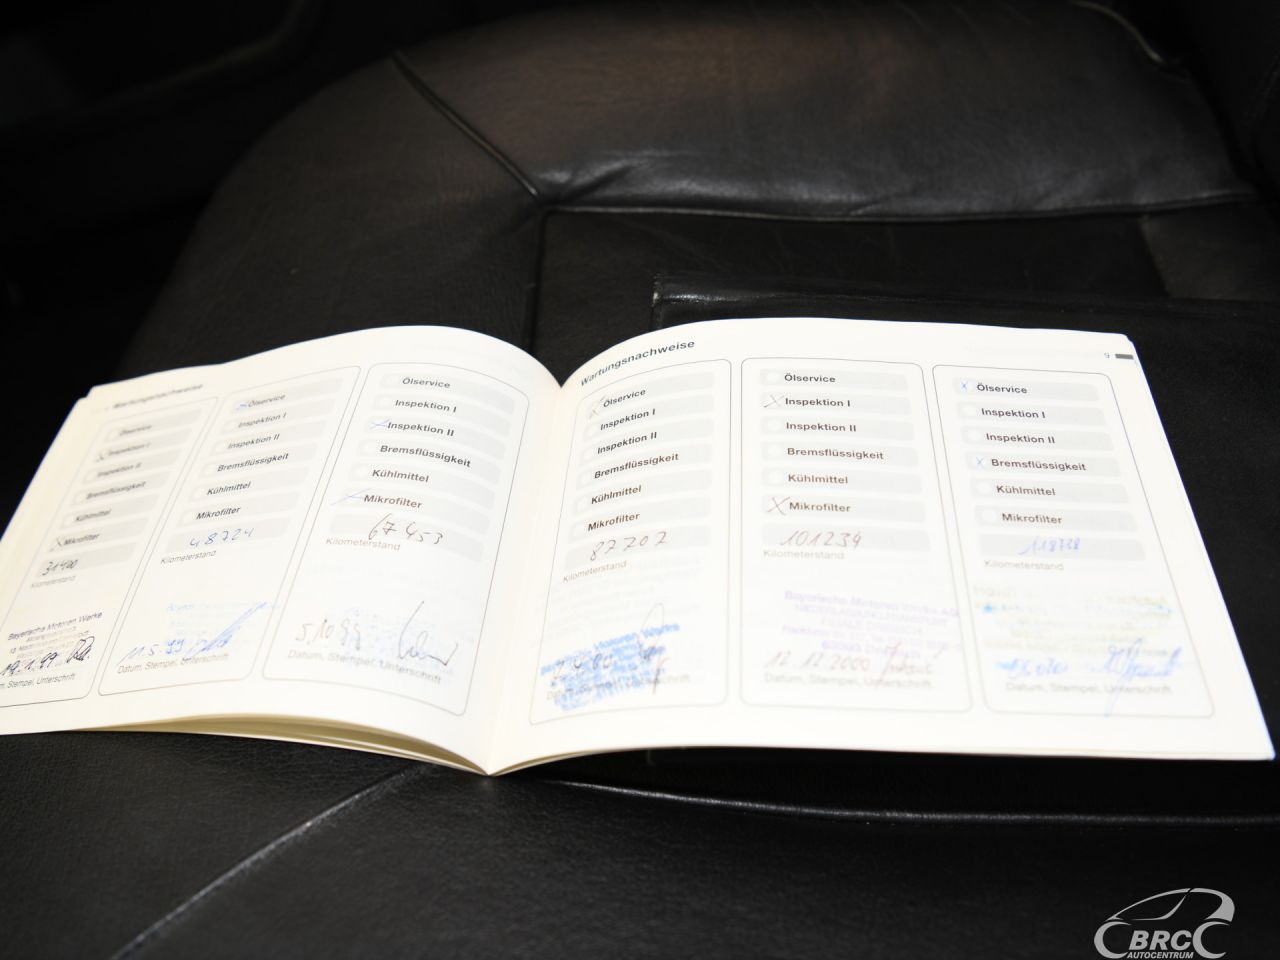 Wartungsnachweise
Ölservice
Inspektion I
Inspektion II
Bremsflüssigkeit
Kühlmittel
Mikrofilter
31400
Kilometerstand
Bayerische Motoren Werke
19.1.99
Datum, Stempel, Unterschrift
Ölservice
Inspektion I
Inspektion II
Bremsflüssigkeit
Kühlmittel
Mikrofilter
48724
Kilometerstand
11.5.99
Datum, Stempel, Unterschrift
Ölservice
Inspektion I
Inspektion II
Bremsflüssigkeit
Kühlmittel
Mikrofilter
67453
Kilometerstand
5.10.99
Datum, Stempel, Unterschrift
Wartungsnachweise
9
Ölservice
Inspektion I
Inspektion II
Bremsflüssigkeit
Kühlmittel
Mikrofilter
87707
Kilometerstand
Bayerische Motoren Werke
Datum, Stempel, Unterschrift
Ölservice
Inspektion I
Inspektion II
Bremsflüssigkeit
Kühlmittel
Mikrofilter
101234
Kilometerstand
Bayerische Motoren Werke AG
12.12.2000
Datum, Stempel, Unterschrift
Ölservice
Inspektion I
Inspektion II
Bremsflüssigkeit
Kühlmittel
Mikrofilter
Kilometerstand
Datum, Stempel, Unterschrift
BRC
AUTOCENTRUM